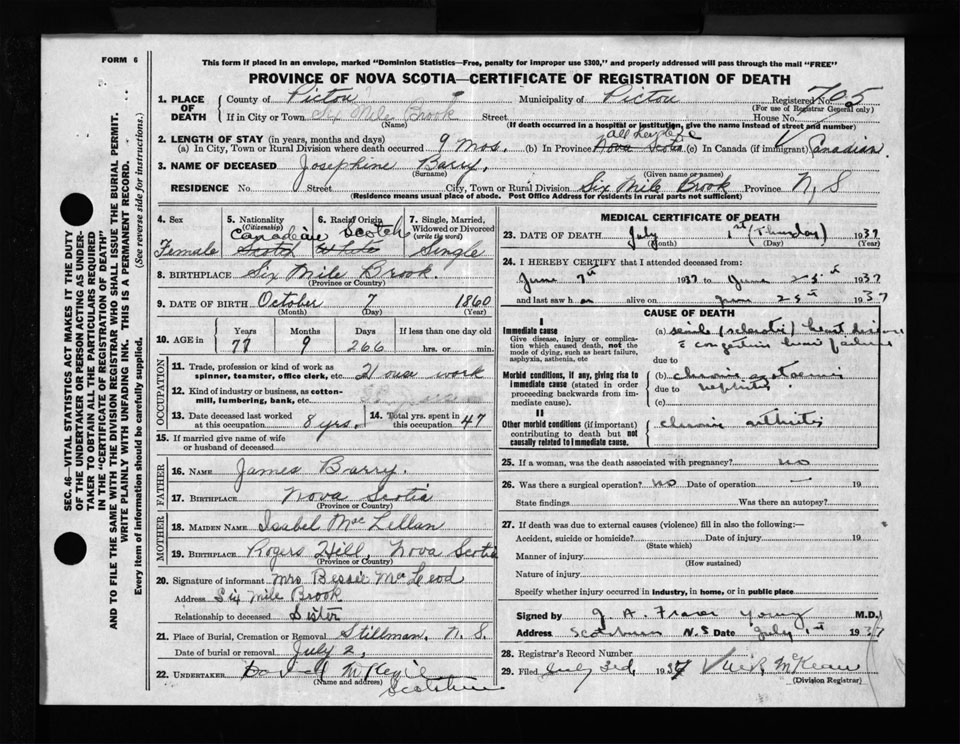 FORM 6
This form if placed in an envelope, marked "Dominion Statistics—Free, penalty for improper use $300," and properly addressed will pass through the mail "FREE"
PROVINCE OF NOVA SCOTIA—CERTIFICATE OF REGISTRATION OF DEATH
1. PLACE OF DEATH County of Pictou Municipality of Pictou Registered No. 705
(For use of Registrar General only)
If in City or Town Six Mile Brook Street House No.
(Name) (If death occurred in a hospital or institution, give the name instead of street and number)
2. LENGTH OF STAY (in years, months and days) all her life
(a) In City, Town or Rural Division where death occurred 9 mos. (b) In Province Nova Scotia (c) In Canada (if immigrant) Canadian.
3. NAME OF DECEASED Josephine Barry,
(Surname) (Given name or names)
RESIDENCE No. Street City, Town or Rural Division Six Mile Brook Province N.S
(Residence means usual place of abode. Post Office Address for residents in rural parts not sufficient)
4. Sex Female
5. Nationality (Citizenship) Canadian Scotch
6. Racial Origin Scotch White
7. Single, Married, Widowed or Divorced (write the word) Single
8. BIRTHPLACE Six Mile Brook.
(Province or Country)
9. DATE OF BIRTH October 7 1860
(Month) (Day) (Year)
10. AGE in Years 77 Months 9 Days 266 If less than one day old hrs. or min.
OCCUPATION
11. Trade, profession or kind of work as spinner, teamster, office clerk, etc. House work
12. Kind of industry or business, as cotton-mill, lumbering, bank, etc.
13. Date deceased last worked at this occupation 8 yrs. 14. Total yrs. spent in this occupation 47
15. If married give name of wife or husband of deceased
FATHER
16. NAME James Barry.
17. BIRTHPLACE Nova Scotia
(Province or Country)
MOTHER
18. MAIDEN NAME Isabel McLellan
19. BIRTHPLACE Rogers Hill, Nova Scotia
(Province or Country)
20. Signature of informant Mrs Bessie McLeod
Address Six Mile Brook
Relationship to deceased Sister
21. Place of Burial, Cremation or Removal Stillman, N.S.
Date of burial or removal July 2,
22. UNDERTAKER
(Name and address)
MEDICAL CERTIFICATE OF DEATH
23. DATE OF DEATH July 1st (Thursday) 1937
(Month) (Day) (Year)
24. I HEREBY CERTIFY that I attended deceased from:
June 7th 1937 to June 25th 1937
and last saw h er alive on June 25th 1937
CAUSE OF DEATH
I
Immediate cause
Give disease, injury or complication which caused death, not the mode of dying, such as heart failure, asphyxia, asthenia, etc
(a) senile (sclerotic) heart disease
congestive heart failure
due to
Morbid conditions, if any, giving rise to immediate cause (stated in order proceeding backwards from immediate cause).
(b) chronic
due to nephritis
(c)
II
Other morbid conditions (if important) contributing to death but not causally related to immediate cause.
chronic arthritis
25. If a woman, was the death associated with pregnancy? no
26. Was there a surgical operation? no Date of operation — 19
State findings Was there an autopsy?
27. If death was due to external causes (violence) fill in also the following:—
Accident, suicide or homicide? Date of injury 19
(State which)
Manner of injury
(How sustained)
Nature of injury
Specify whether injury occurred in industry, in home, or in public place
Signed by J. A. Fraser Young M.D.
Address Scotsburn N.S Date July 1st 1937
28. Registrar's Record Number
29. Filed July 3rd, 1937 McKean
(Division Registrar)
SEC. 46—VITAL STATISTICS ACT MAKES IT THE DUTY
OF THE UNDERTAKER OR PERSON ACTING AS UNDER-
TAKER TO OBTAIN ALL THE PARTICULARS REQUIRED
IN THE "CERTIFICATE OF REGISTRATION OF DEATH"
AND TO FILE THE SAME WITH THE DIVISION REGISTRAR WHO SHALL ISSUE THE BURIAL PERMIT.
WRITE PLAINLY WITH UNFADING INK. THIS IS A PERMANENT RECORD.
Every item of information should be carefully supplied. (See reverse side for instructions.)